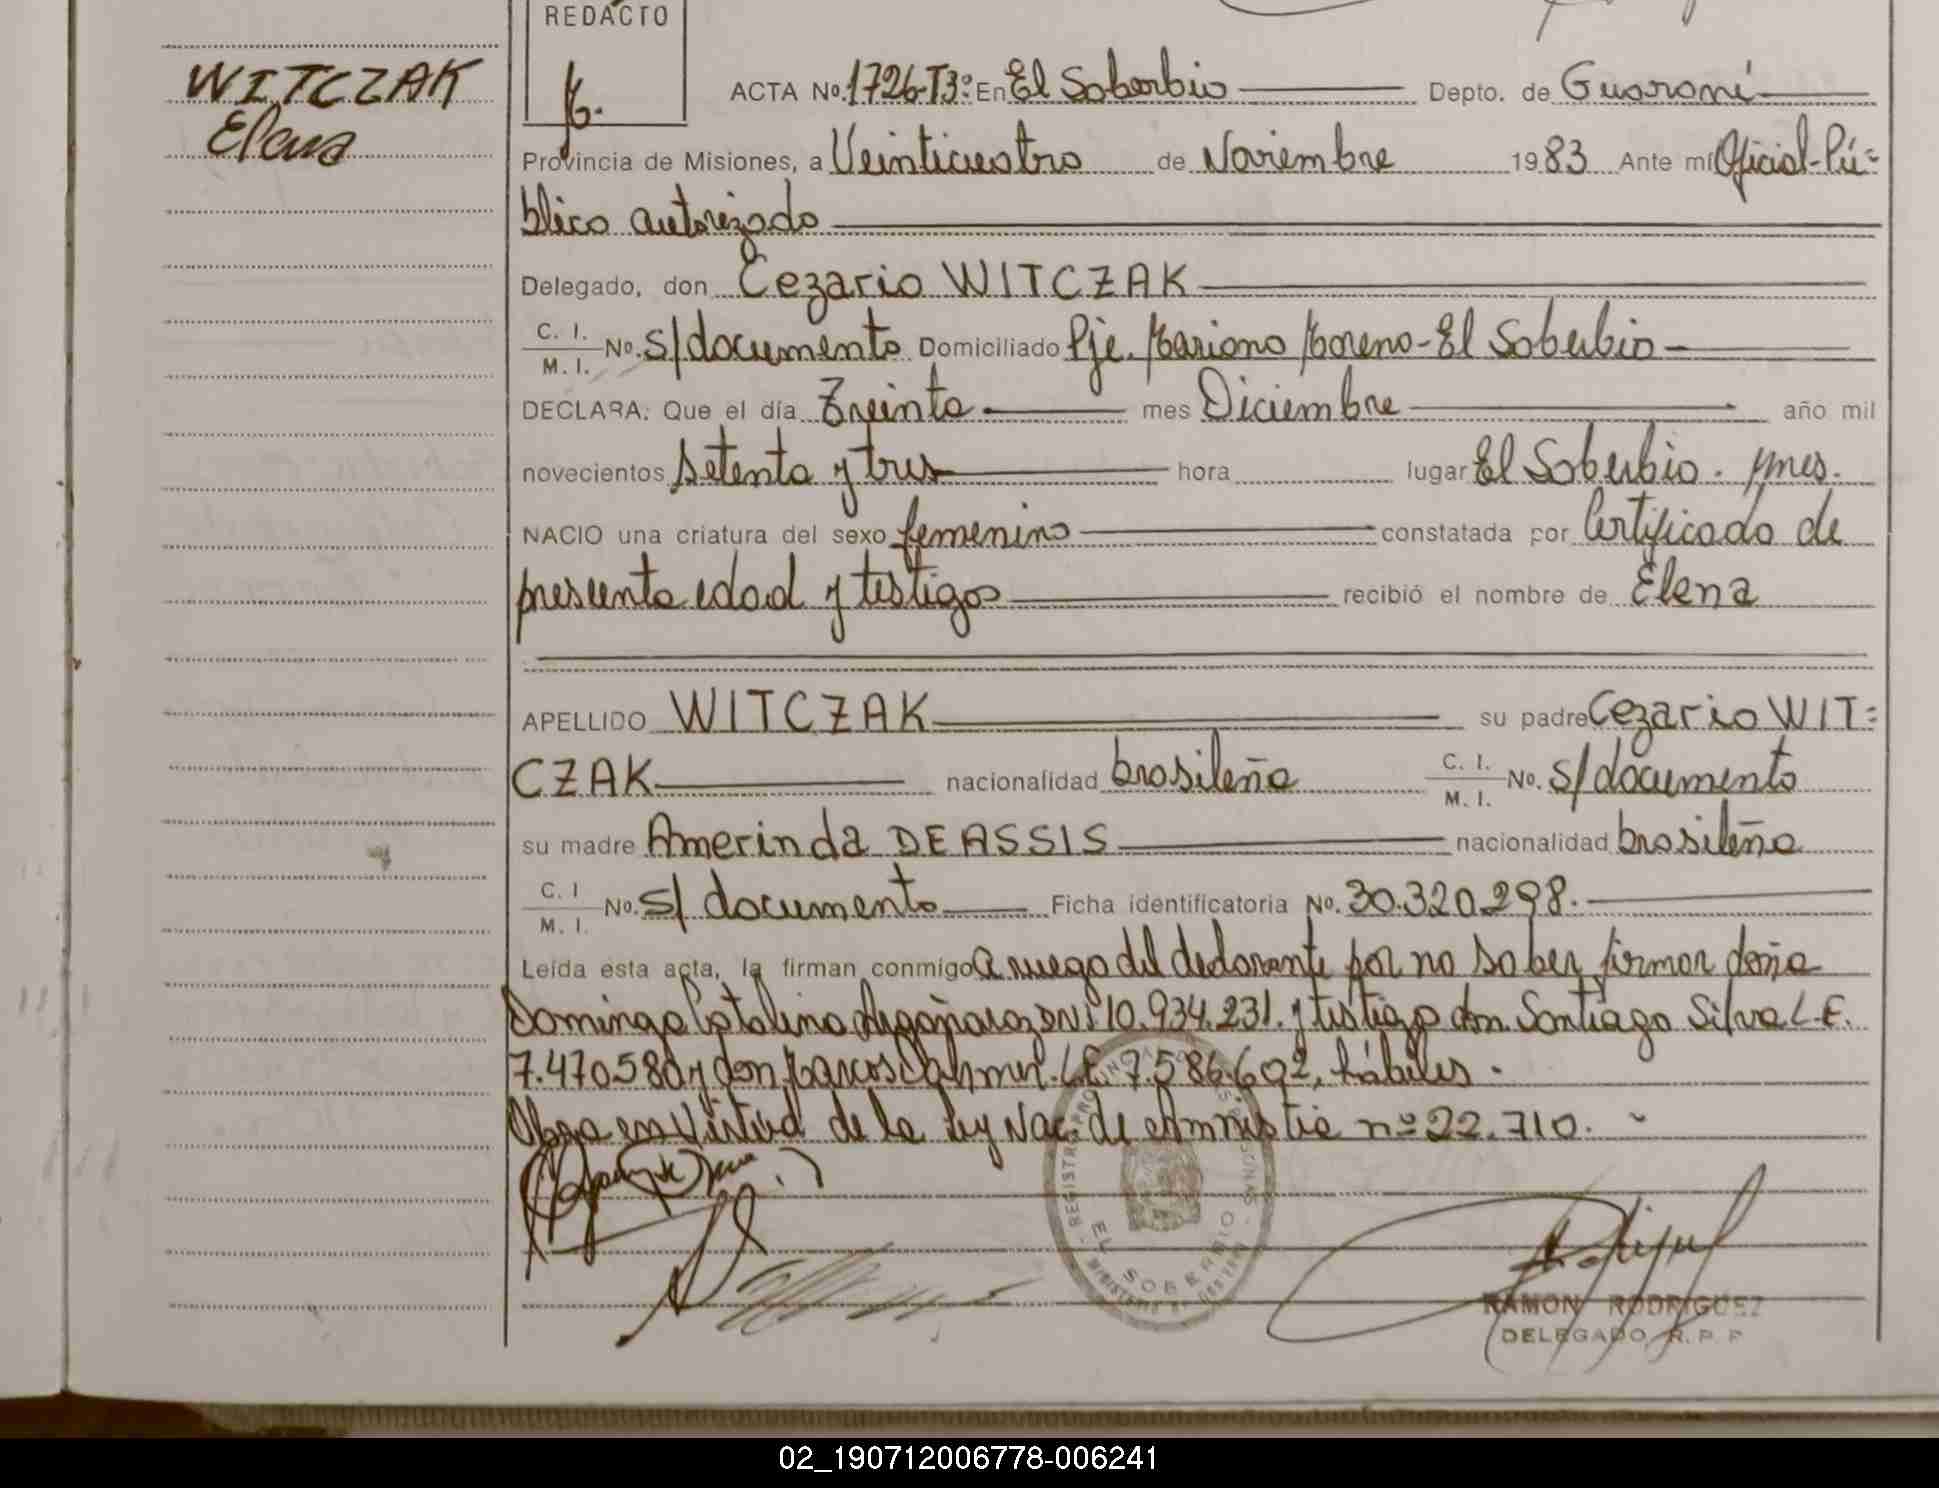 WITCZAK
Elena
REDACTO
ACTA No. 1726-T3º En El Soberbio Depto. de Guaraní
Provincia de Misiones, a Veinticuatro de Noviembre 1983 Ante mí Oficial-Pú=
blico autorizado
Delegado, don Cezario WITCZAK
C. I. M. I. No. s/documento Domiciliado Pje. Mariano Moreno-El Soberbio
DECLARA: Que el día Treinta mes Diciembre año mil
novecientos setenta y tres hora lugar El Soberbio. Mnes.
NACIO una criatura del sexo femenino constatada por Certificado de
presunta edad y testigos recibió el nombre de Elena
APELLIDO WITCZAK su padre Cezario WIT=
CZAK nacionalidad brasileña C. I. M. I. No. s/documento
su madre Amerinda DE ASSIS nacionalidad brasileña
C. I M. I. No. s/documento Ficha identificatoria No. 30.320.298.
Leída esta acta, la firman conmigo A ruego del declarante por no saber firmar doña
Dominga Catalina DNI 10.934.231. y testigo don Santiago Silva L.E.
7.470580 y don Marcos L.E. 7.586.692, hábiles.
en Virtud de la Ley Nac. de Amnistia nº 22.710.
REGISTRO PROVINCIAL DE LAS PERSONAS
EL SOBERBIO
RAMON RODRIGUEZ
DELEGADO R. P. P
02_190712006778-006241